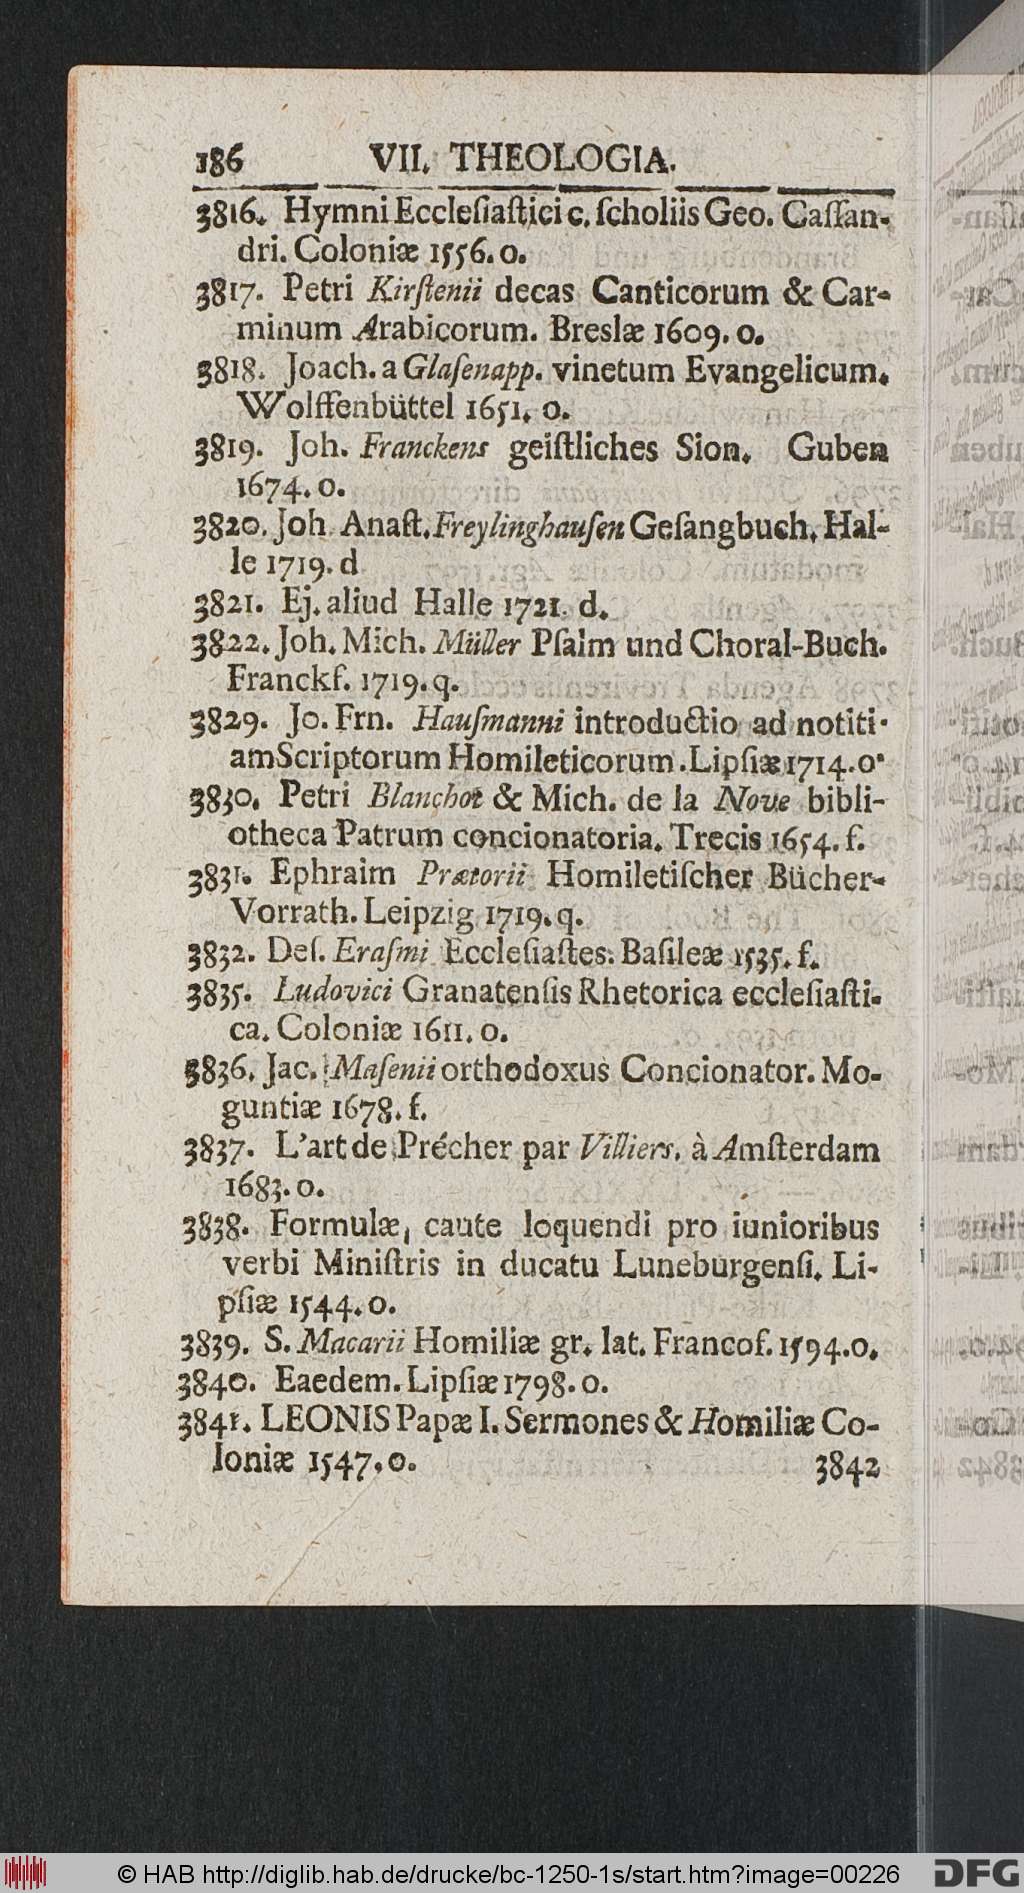 186 VII. THEOLOGIA.
3816. Hymni Eccleſiaſtici c. ſcholiis Geo. Caſſan-
dri. Coloniæ 1556. o.
3817. Petri Kirſtenii decas Canticorum & Car-
minum Arabicorum. Breslæ 1609. o.
3818. Joach. a Glaſenapp. vinetum Evangelicum.
Wolffenbüttel 1651. o.
3819. Joh. Franckens geiſtliches Sion. Guben
1674. o.
3820. Joh Anaſt. Freylinghauſen Geſangbuch. Hal-
le 1719. d
3821. Ej. aliud Halle 1721. d.
3822. Joh. Mich. Müller Pſalm und Choral-Buch.
Franckf. 1719. q.
3829. Jo. Frn. Hauſmanni introductio ad notiti-
am Scriptorum Homileticorum. Lipſiæ 1714. o.
3830. Petri Blanchot & Mich. de la Nove bibli-
otheca Patrum concionatoria. Trecis 1654. f.
3831. Ephraim Prætorii Homiletiſcher Bücher-
Vorrath. Leipzig 1719. q.
3832. Deſ. Eraſmi Eccleſiaſtes: Baſileæ 1535. f.
3835. Ludovici Granatenſis Rhetorica eccleſiaſti-
ca. Coloniæ 1611. o.
3836. Jac. Maſenii orthodoxus Concionator. Mo-
guntiæ 1678. f.
3837. L'art de Précher par Villiers. à Amſterdam
1683. o.
3838. Formulæ, caute loquendi pro iunioribus
verbi Miniſtris in ducatu Luneburgenſi. Li-
pſiæ 1544. o.
3839. S. Macarii Homiliæ gr. lat. Francof. 1594. o.
3840. Eaedem. Lipſiæ 1798. o.
3841. LEONIS Papæ I. Sermones & Homiliæ Co-
loniæ 1547. o. 3842
© HAB http://diglib.hab.de/drucke/bc-1250-1s/start.htm?image=00226 DFG